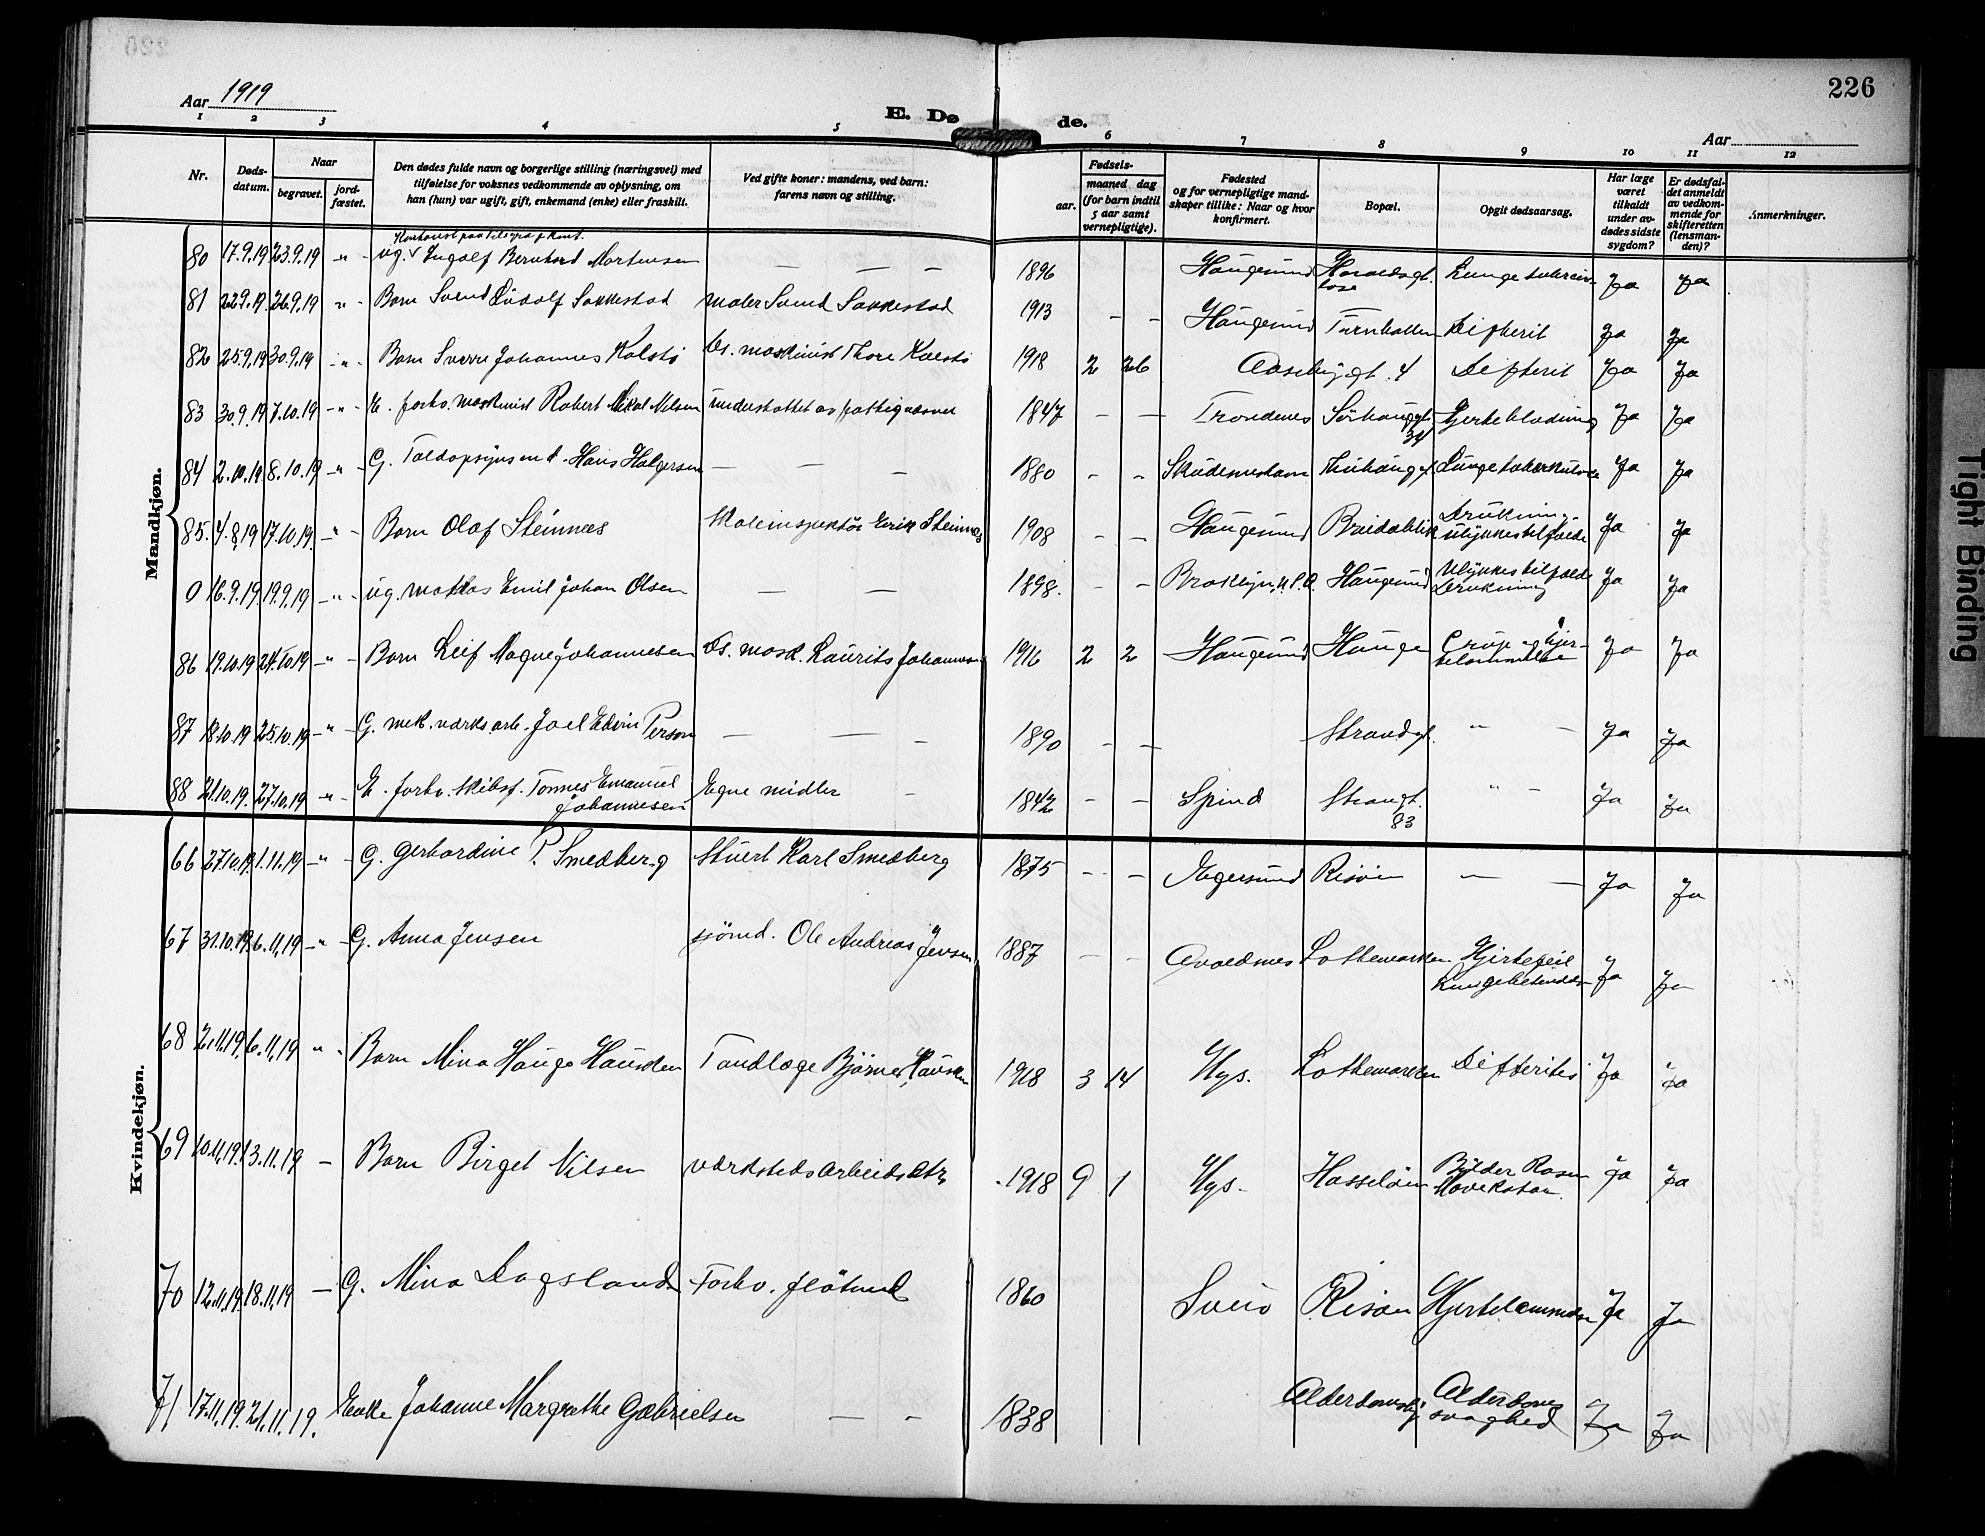 226
Aar 1919
E. Dø de.
Aar
1 2 3 4 5 6 7 8 9 10 11 12
Nr.
Døds-
datum.
Naar
begravet.
jord-
fæstet.
Den dødes fulde navn og borgerlige stilling (næringsvei) med
tilføielse for voksnes vedkommende av oplysning, om
han (hun) var ugift, gift, enkemand (enke) eller fraskilt.
Ved gifte koner: mandens, ved barn:
farens navn og stilling.
Fødsels-
aar.
maaned dag
(for barn indtil
5 aar samt
vernepligtige).
Fødested
og for vernepligtige mand-
skaper tillike: Naar og hvor
konfirmert.
Bopæl.
Opgit dødsaarsag.
Har læge
været
tilkaldt
under av-
dødes sidste
sygdom?
Er dødsfal-
det anmeldt
av vedkom-
mende for
skifteretten
(lensman-
den)?
Anmerkninger.
Mandkjøn.
80 17.9.19 23.9.19 -"- ug. Ingolf Bernhard Mortensen — — — 1896 Haugesund Ja Ja
81 22.9.19 26.9.19 "- Barn Svend Ludolf Sakkestad maler Svend Sakkestad 1913 - - Haugesund Difterit Ja Ja
82 25.9.19 30.9.19 -"- Barn Sverre Johannes Kolstø Thore Kolstø 1918 2 26 Aasebygt. 4 Difterit Ja Ja
83 30.9.19 7.10.19 -"- E. forhv. maskinist Robert Mikal Nilsen understøttet av fattigvæsnet 1847 - - Trondenes Sørhauggt. 34 Hjerteblødning Ja Ja
84 2.10.19 8.10.19 -"- G. Toldopsynsmd. Hans Holgersen — — — 1880 - - Lungetuberkulose Ja Ja
85. 4.8.19 17.10.19. -"- Barn Olaf Steinnes Skoleinspektør Erik Steinnes 1908 - - Haugesund Breidablik Drukning ulykkestilfælde Ja Ja
0 16.9.19 19.9.19 -"- ug. matros Emil Johan Olsen — — 1898. - - Haugesund Ulykkestilfælde Drukning Ja Ja
86 19.10.19 24.10.19 -"- Barn Leif Magne Johannesen Fs. mask. Laurits Johannesen 1916 2 2 Haugesund Hauge Ja Ja
87 18.10.19 25.10.19 -"- G. mek. værks arb. Joel Edvin Person — — - 1890 - - Strandgt. " - Ja Ja
88 21.10.19. 27.10.19 -"- E. forhv. skibsf. Tønnes Emanuel
Johannesen Egne midler - 1842 - - Spind 83 " - Ja Ja
Kvindekjøn.
66 27.10.19 1.11.19 -"- G. Gerhardine P. Smedberg Stuert Karl Smedberg 1875 - - Egersund Risøen — — Ja Ja
67 31.10.19 6.11.19 -"- G. Anna Jensen sjømd. Ole Andreas Jensen 1887 - - Avaldsnes Lothemarken Hjertefeil Ja Ja
68 2.11.19. 6.11.19 "- Barn Mina Hauge Hausken Tandlæge Bjarne Hausken 1918 3 14 Hgs. Lothemarken Difterites Ja Ja
69 10.11.19. 13.11.19 - Barn Birget Nilsen værkstedsarbeider 1918 9 1 Hgs. Hasseløen Ja Ja
70 12.11.19 18.11.19 - G. Mina Dagsland Forhv. fløtmd 1860 Sveio Risøen Hjertelammelse Ja Ja
71 17.11.19. 21.11.19. Enke Johanne Margrethe Gabrielsen — - 1838 Alderdoms svaghed Ja Ja
Tight Binding